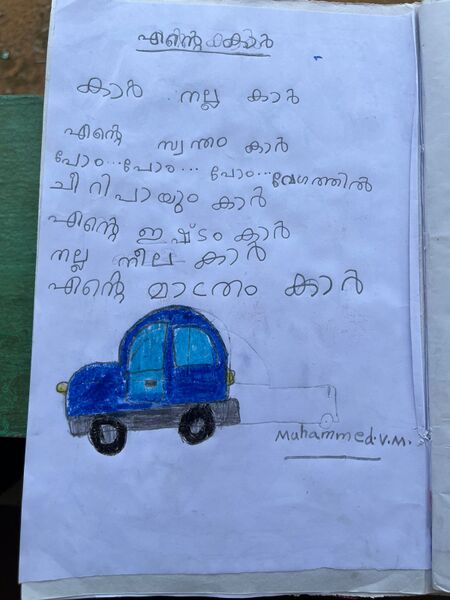 എന്റെ കാർ
കാർ നല്ല കാർ
എന്റെ സ്വന്തം കാർ
പോം...പോം... പോം...വേഗത്തിൽ
ചീറിപായും കാർ
എന്റെ ഇഷ്ടം കാർ
നല്ല നീല കാർ
എന്റെ മാത്രം കാർ
Muhammed.V.M.